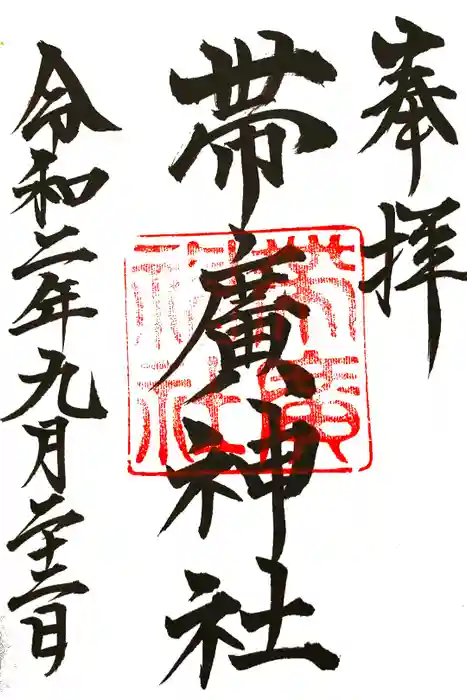 奉拝
帯廣神社
帯廣
神社
令和二年九月二十二日